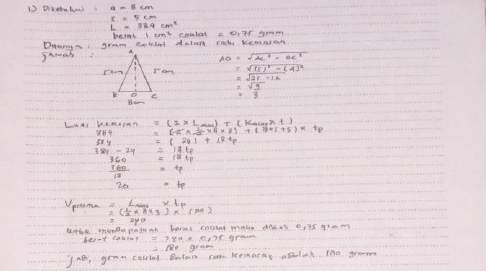 1) Diketahui : a = 8 cm
s = 5 cm
L = 384 cm²
berat 1 cm³ coklat = 0,75 gram
Ditanya : gram coklat dalam satu kemasan
Jawab :
A
5cm 5cm
B O C
8cm
AO = √AC² - OC²
= √(5)² - (4)²
= √25 - 16
= √9
= 3
Luas kemasan = (2 × L) + (K × t)
384 = (2 × ½ × 8 × 3) + (8+5+5) × tp
384 = ( 24) + 18 tp
384 - 24 = 18 tp
360 = 18 tp
360/18 = tp
20 = tp
Vprisma = L × tp
= (½ × 8 × 3) × (20)
= 240
untuk mendapatkan berat coklat maka 0,75 gram
berat coklat = 240 × 0,75 gram
= 180 gram
Jadi, gram coklat dalam satu kemasan adalah 180 gram